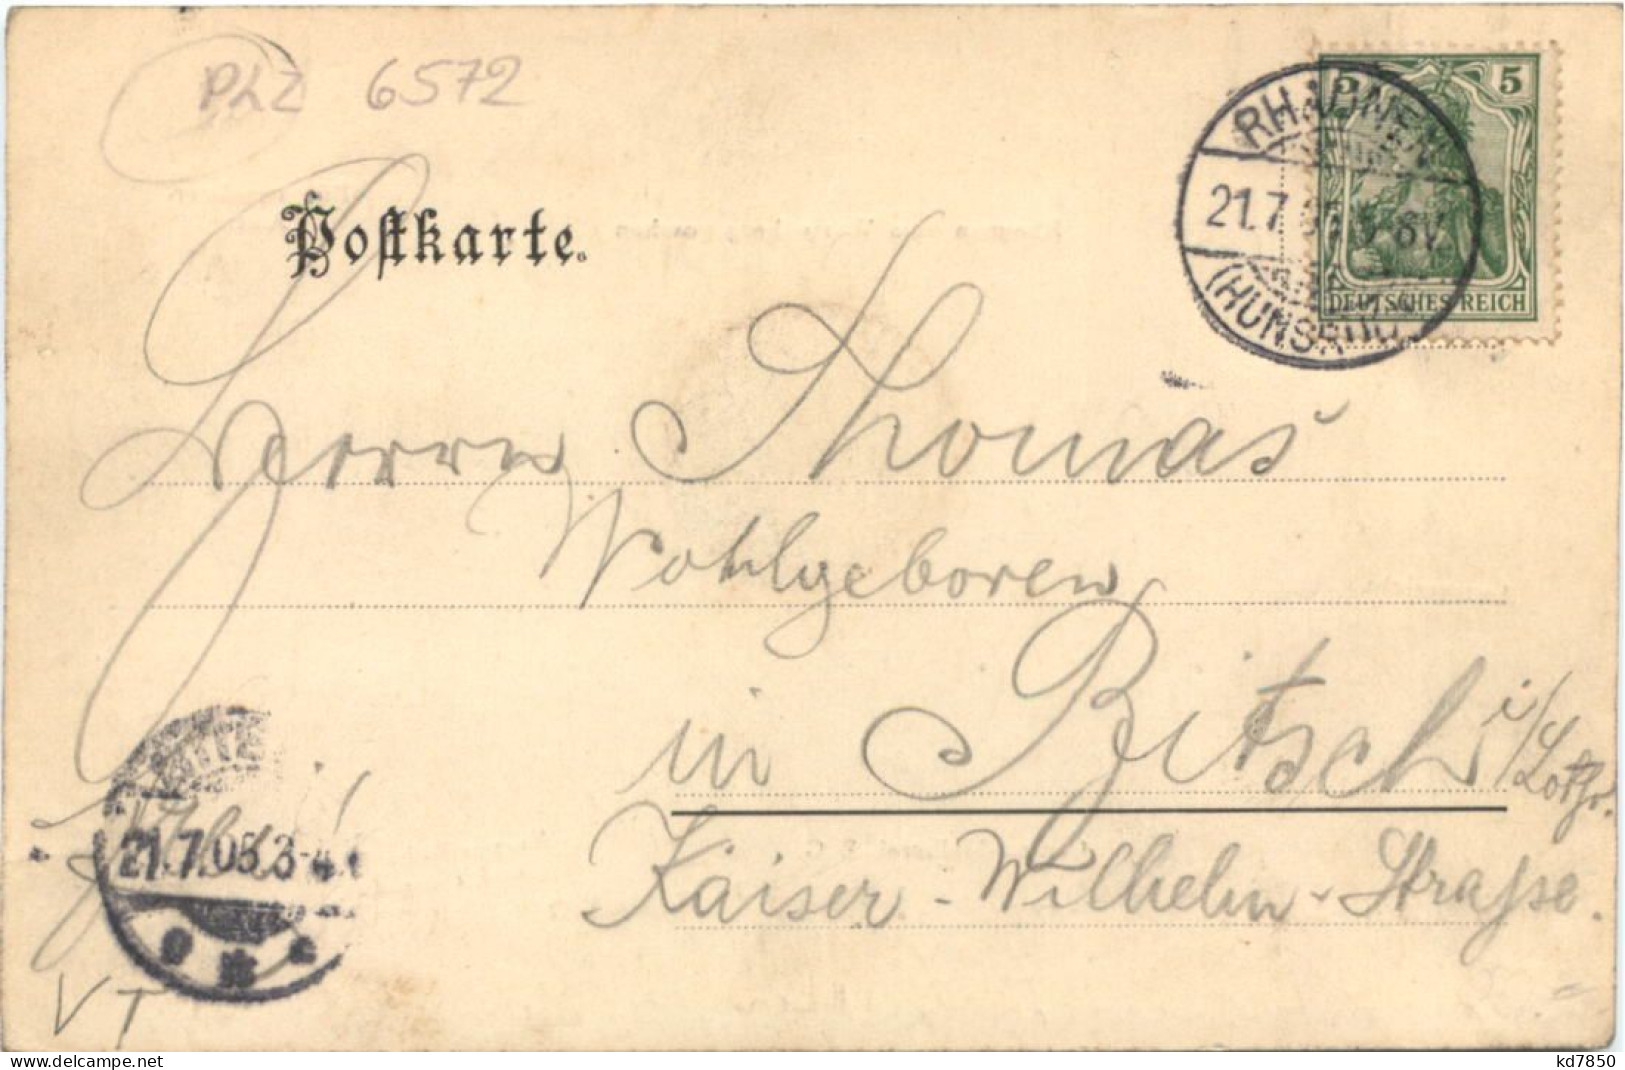 PLZ 6572
Postkarte.
5
RHAUNEN
21.7.05
(HUNSRÜCK)
DEUTSCHES REICH
Herrn Thomas
Wohlgeboren
in Bitsch i/Lothr.
Kaiser-Wilhelm-Strasse.
21.7.05.3-4
VT
www.delcampe.net
kd7850